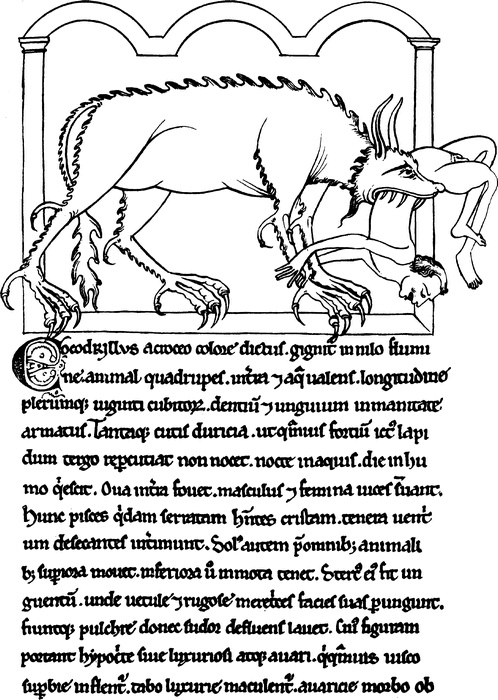 Cocodrillus acroceo colore dictus. gignit̄ in nilo flumi
ne. animal quadrupes. int̄ra ⁊ aq̄ ualens. longitudine
plerumq; uiginti cubitoꝝ. dentiū ⁊ unguium inmanitate
armatus. Tantaq; cutis duricia. ut q̄muis fortiū ictꝰ lapi
dum tergo reꝑcutiat non nocet. nocte inaquis. die inhu
mo q̄escit. Oua int̄ra fouet. masculus ⁊ femina uices s̄uant.
Hunc pisces q̄dam serratam h̄ntes cristam. tenera uent̄
um desecantes int̄imunt. Solꝰ autem p̄omnib; animali
b; suꝑiora mouet. inferiora ū inmota tenet. Stercꝰ eiꝰ fit un
guentū. unde uetule ⁊ rugose meret̄ces facies suas ꝑungunt.
fiuntq; pulchre donec sudor defluens lauet. Cuiꝰ figuram
portant hypoc̄te siue luxuriosi atq; auari. q̄q̄muis uisco
suꝑbie inflent̄. tabo luxurie maculent̄. auaricie morbo ob